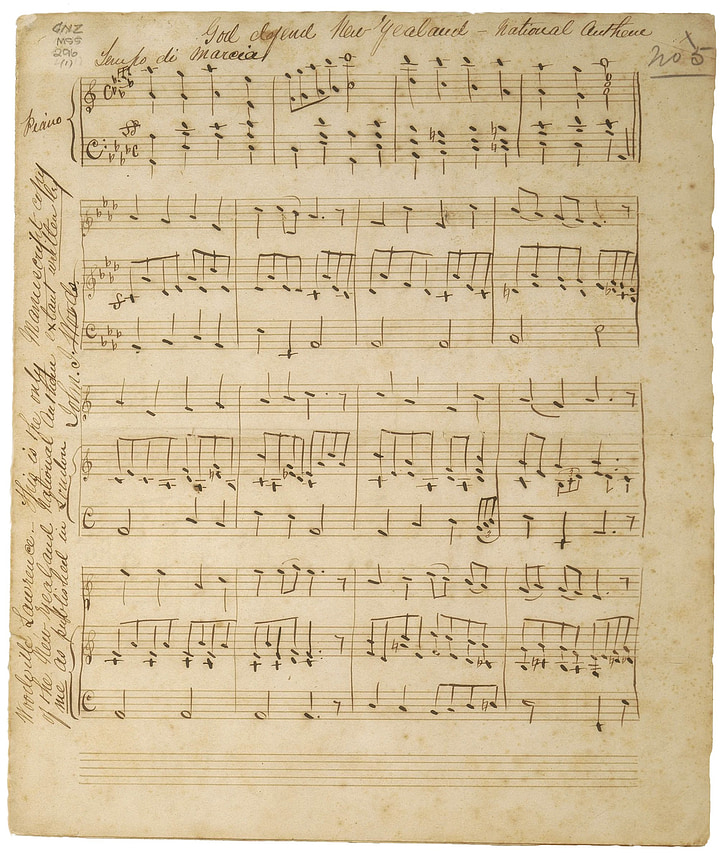 GNZ
MSS
2016
(1)
God defend New Zealand – National Anthem
No 5
Tempo di Marcia
Piano
ff
f
Woodville Lawrence – This is the only Manuscript copy
of the New Zealand National Anthem extant written by
me as published in London John J. Woods